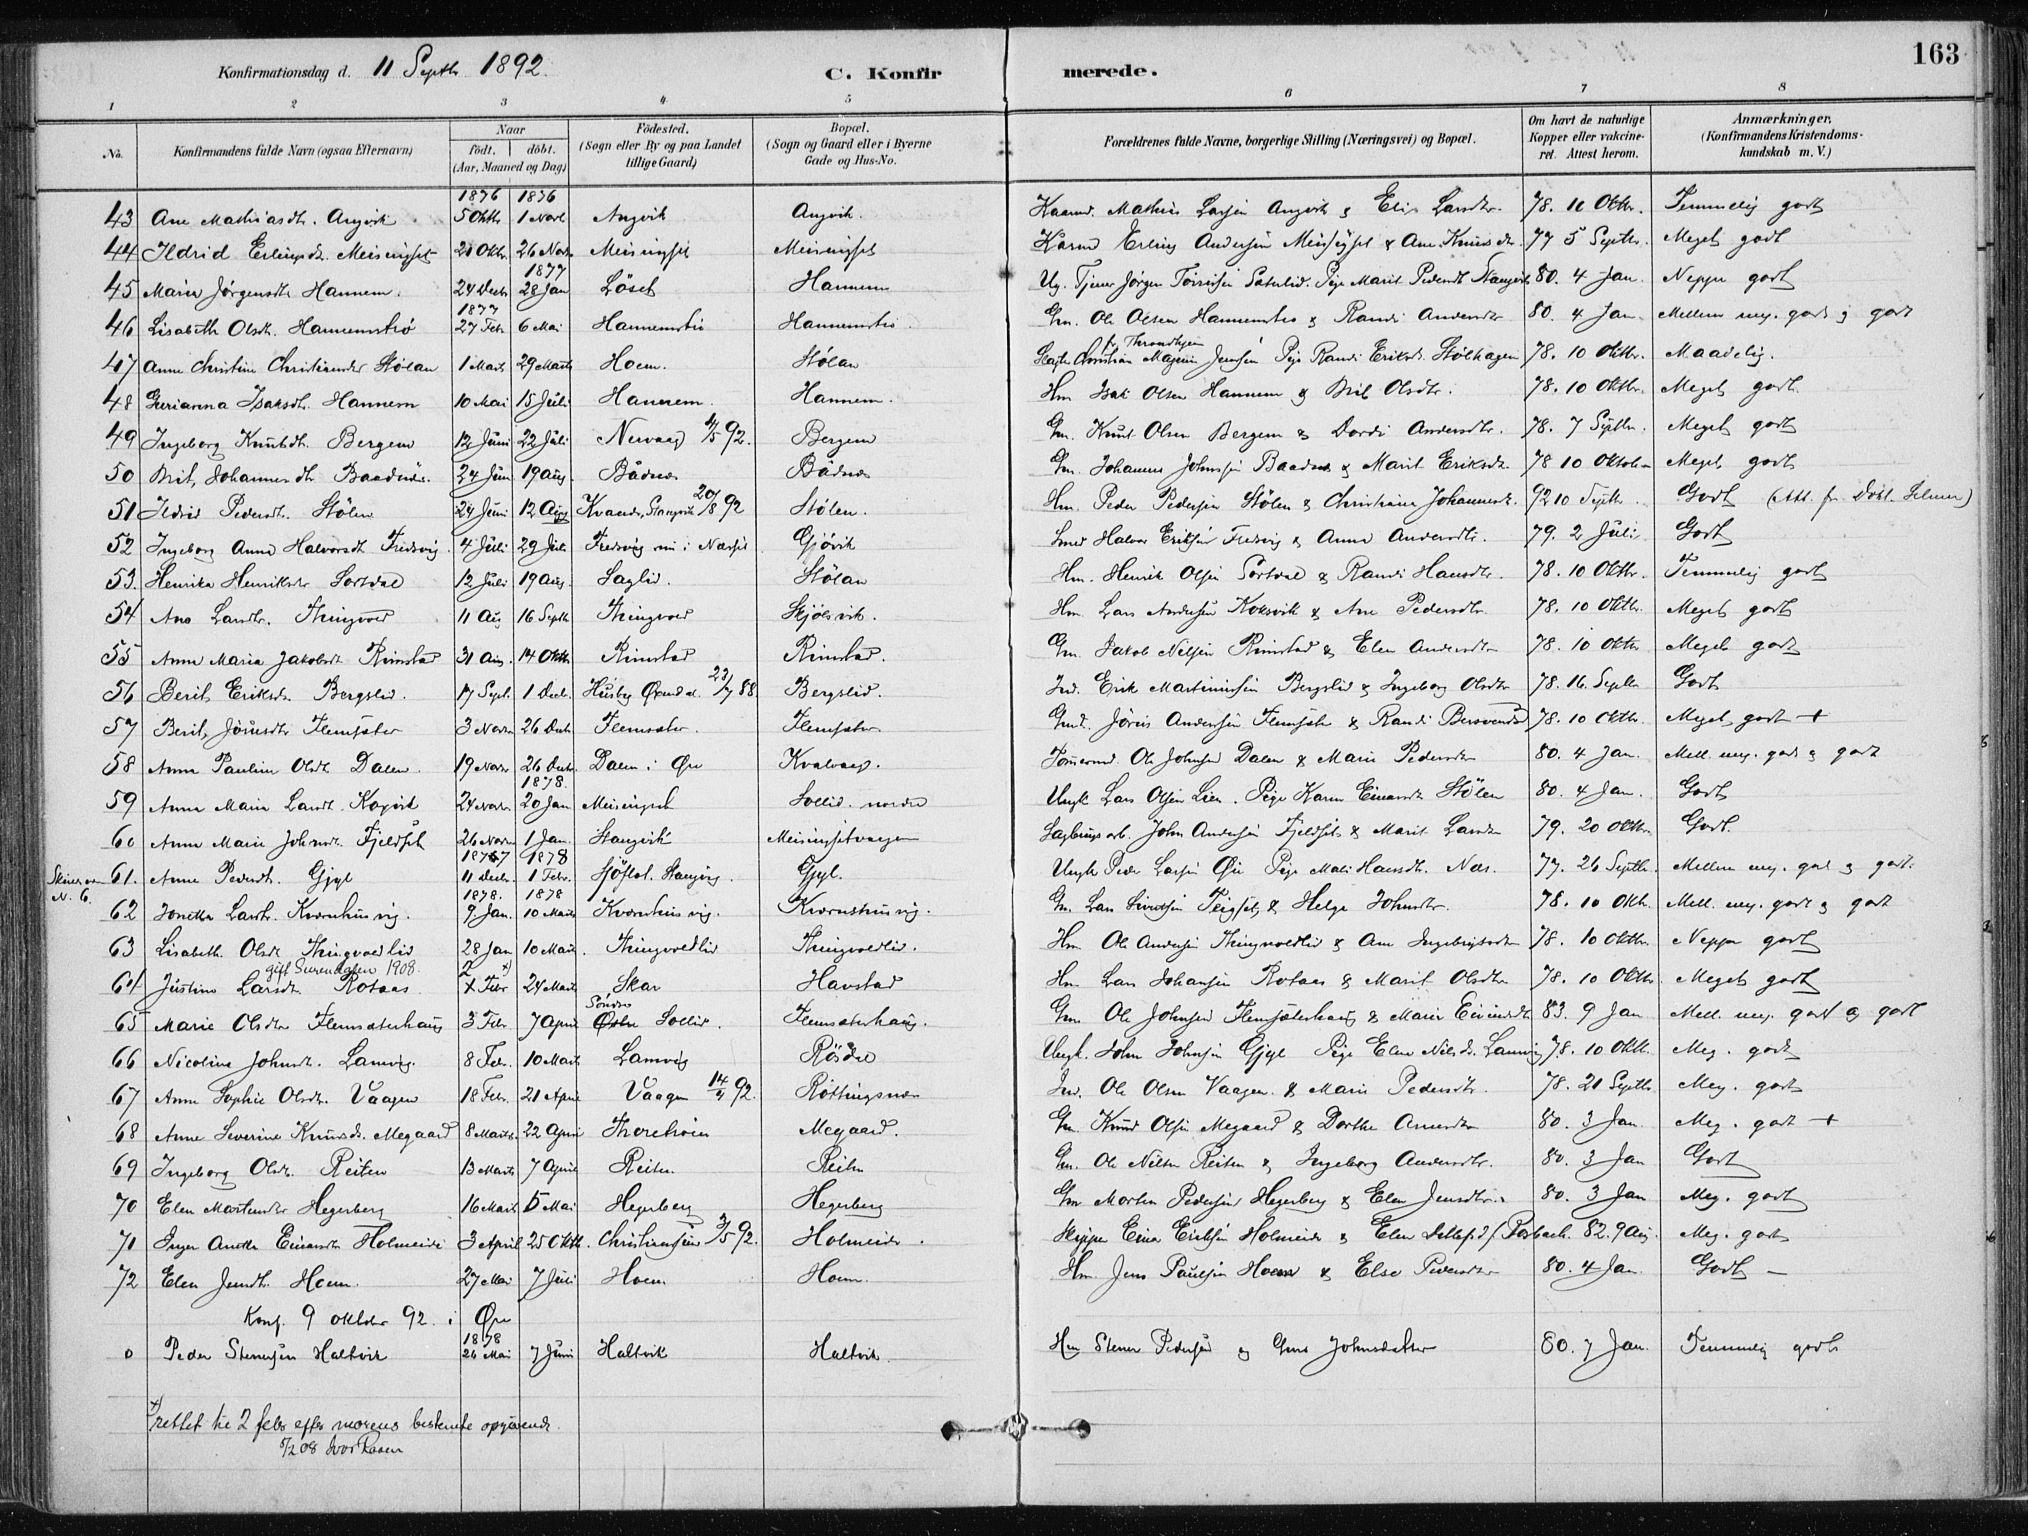 163
Konfirmationsdag d. 11 Septbr 1892. C. Konfirmerede.
1 2 3 4 5 6 7 8
No. Konfirmandens fulde Navn (ogsaa Efternavn) Naar födt. döbt. (Aar, Maaned og Dag) Födested. (Sogn eller By og paa Landet tillige Gaard) Bopæl. (Sogn og Gaard eller i Byerne Gade og Hus-No. Forældrenes fulde Navne, borgerlige Stilling (Næringsvei) og Bopæl. Om havt de naturlige Kopper eller vakcineret. Attest herom. Anmærkninger, (Konfirmandens Kristendomskundskab m. V.)
1876 1876
43 Ane Mathiasdtr. Angvik 5 Oktbr 1 Novbr Angvik Angvik. Kaarmd. Mathias Larsen Angvik & Elis Larsdtr. 78. 10 Oktbr. Temmelig godt
44 Ildrid Erlingsdtr. Meisingset 20 Oktbr 26 Novbr Meisingset Meisingset Kaarmd Erling Andersen Meisingset & Ane Knutsdtr. 77 5 Septbr. Meget godt
1877
45 Marie Jørgensdtr Hannem. 24 Decbr 28 Jan Löset Hannem Ug. Tjener Jörgen Pige Marit Pedersdt Stangvik 80. 4 Jan. Neppe godt
1877
46 Lisabeth Olsdtr. Hannemstrø 27 Febr 6 Mai Hannemstrø Hannemstrø. Gm. Ole Olsen Hannemstrø & Randi Andersdtr 80. 4 Jan. Mellem meg. godt og godt
fr. Throndhjem
47 Anne Christine Christiansdtr Stølan 1 Marts 29 Marts Hoem. Stølan Christian Magnus Jensen Pige Randi Eriksdtr. Stølhagen 78. 10 Oktbr. Maadelig.
48 Gurianna Isaksdtr. Hannem 10 Mai 15 Juli Hannem. Hannem. Hm Isak Olsen Hannem & Brit Olsdtr. 78. 10 Oktbr. Meget godt.
49 Ingeborg Knutsdtr. Bergem 12 Juni 22 Juli Nervaag 4/5 92. Bergem Gm. Knut Olsen Bergem & Dordi Andersdtr. 78. 7 Septbr. Meget godt
50 Brit Johannesdtr. Baadnæs. 24 Juni 19 Aug. Bådnes Bådnes Gm. Johannes Johnsen Baadnæs & Marit Eriksdtr. 78 10 Oktober Meget godt
51 Ildrid Pedersdtr. Stølen 24 Juni 12 Aug Kvande, Stangvik 20/8 92 Stølen. Hm. Peder Pedersen Stølen & Christiane Johannesdtr. 92 10 Septbr. Godt (Att. fr. Dokt. )
52 Ingeborg Anna Halvorsdtr Fredsvig. 4 Juli 29 Juli Fredsvig nu i Næsset Gjøvik Smed Halvor Eriksen Fredsvig & Anne Andersdtr. 79. 2 Juli Godt
53. Henrika Henriksdtr Sortdal 12 Juli 19 Aug. Saglid. Stølan Hm. Henrik Olsen Sortdal & Randi Hansdtr. 78. 10 Oktbr. Temmelig godt
54 Ane Larsdtr. Thingvold 11 Aug 16 Septbr Thingvold Skjølsvik. Hm. Lars Andersen Koksvik & Ane Pedersdtr. 78. 10 Oktbr. Meget godt
55 Anne Maria Jakobsdtr Rimstad 31 Aug. 14 Oktbr Rimstad Rimstad. Gm. Jakob Nilsen Rimstad & Elen Andersdtr 78. 10 Oktbr Meget godt
56 Berit Eriksdtr. Bergslid. 17 Sept. 1 Decb. Husby Ørend. 23/7 88. Bergslid. Ind. Erik Martiniussen Bergslid & Ingeborg Olsdtr 78. 16. Septbr Godt
57 Berit Jörnsdtr Flemsæter 3 Novbr 26 Decbr Flemsæter. Flemsæter Gmd. Jöris Andersen Flemsæter & Randi Bersvendsd 78. 10 Oktbr. Meget godt +
58 Anne Pauline Olsdtr Dalen. 19 Novbr 26 Decbr. Dalen i Øre Kvalvaag. Tømmermd Ole Johnsen Dalen & Marie Pedersdtr 80. 4 Jan. Mell. meg. godt og godt
1878.
59 Anne Marie Larsdt. Kogvik 24 Novbr 20 Jan Meisingset Sollid. nordre Ungk. Lars Olsen Lien. Pige Karen Einarsdtr Stølen 80. 4 Jan. Godt
60 Anne Marie Johnsdtr. Fjeldset 26 Novbr 1 Jan. Stangvik Meisingsetvaagen Sagbrugsarb. John Andersen Fjeldset & Marit Larsdtr 79. 20 Oktbr. Godt.
1877 1878
N. 6.
61. Anne Pedersdtr. Gjyl 11 Decbr. 1 Febr. Sjöflot. Stangvig. Gjyl. Ungk Peder Larsen Øie Pige Mali Hansdtr. Næs. 77. 26 Septbr. Mellem meg. godt og godt.
1878. 1878
62 Jonetta Larsdtr. Kvernhusvig. 9 Jan. 10 Marts Kvernhusvig. Kvernhusvig. Gm. Lars Sivertsen Teigset & Helga Johnsdtr. 78. 10 Oktbr. Mell. meg. godt og godt
63 Lisabeth Olsdtr Thingvoldlid 28 Jan 10 Marts. Thingvoldlid Thingvoldlid. Hm Ole Andersen Thingvoldlid & Ane Ingebrigtsdtr 78. 10 Oktbr. Neppe godt
gift Surendalen 1908.
2 x)
64 Justine Larsdtr. Rotaas x Febr 24 Marts Skar Havstad Hm Lars Johansen Rotaas & Marit Olsdtr 78. 10 Oktbr Meget godt
Söndre
65 Marie Olsdtr Flemsæterhaug 3 Febr. 7 April Østre Sollid. Flemsæterhaug. Gm. Ole Johnsen Flemsæterhaug & Marie Einarsdtr 83. 9 Jan Mell. meg. godt og godt
66 Nicoline Johnsdt. Lamvig. 8 Febr. 10 Marts Lamvig Rödsle Ungk. John Johnsen Gjyl Pige Elen Nilsdtr. Lamvig 78. 10 Oktb. Meg. godt
67 Anne Sophie Olsdtr. Vaagen 18 Febr. 21 April Vaagen 14/4 92. Röttingsnæs Ind. Ole Olsen Vaagen & Marie Pedersdtr. 78. 21 Septbr Meg. godt
68 Anne Severine Knutsdtr. Megaard 8 Marts. 22 April Thorehøien Megaard. Gm. Knud Olsen Megaard & Dorthe Arnesdtr 80. 3 Jan Meg. godt +
69 Ingeborg Olsdtr. Reiten 13 Marts 7 April Reiten Reiten Gm. Ole Nilsen Reiten & Ingeborg Andersdtr. 80. 3 Jan Godt
70 Elen Mortensdtr Hegerberg 16 Marts 5 Mai Hegerberg Hegerberg Gm Morten Pedersen Hegerberg & Elen Jensdtr. 80. 3 Jan Meg. godt
71 Inger Anette Einarsdtr Holmeide 3 April 25 Oktb. Christiansund 3/5 92. Holmeide. Skipper Einar Eriksen Holmeide & Elen 82. 9 Aug. Meg. godt
72 Elen Jensdtr. Hoem. 27 Mai 7 Juli Hoem Hoem. Hm. Jens Paulsen Hoem & Else Pedersdtr 80. 4 Jan. Godt —
Konf. 9 oktober 92. i Øre
1878
0 Peder Stenersen Haltvik 26 Mai 7 Juni Haltvik Haltvik. Hm Stener Pedersen og Guru Johnsdatter 80. 7 Jan. Temmelig godt
x) rettet til 2 febr efter morens bestemte opgivende.
5/2 08 Ivar Raaen